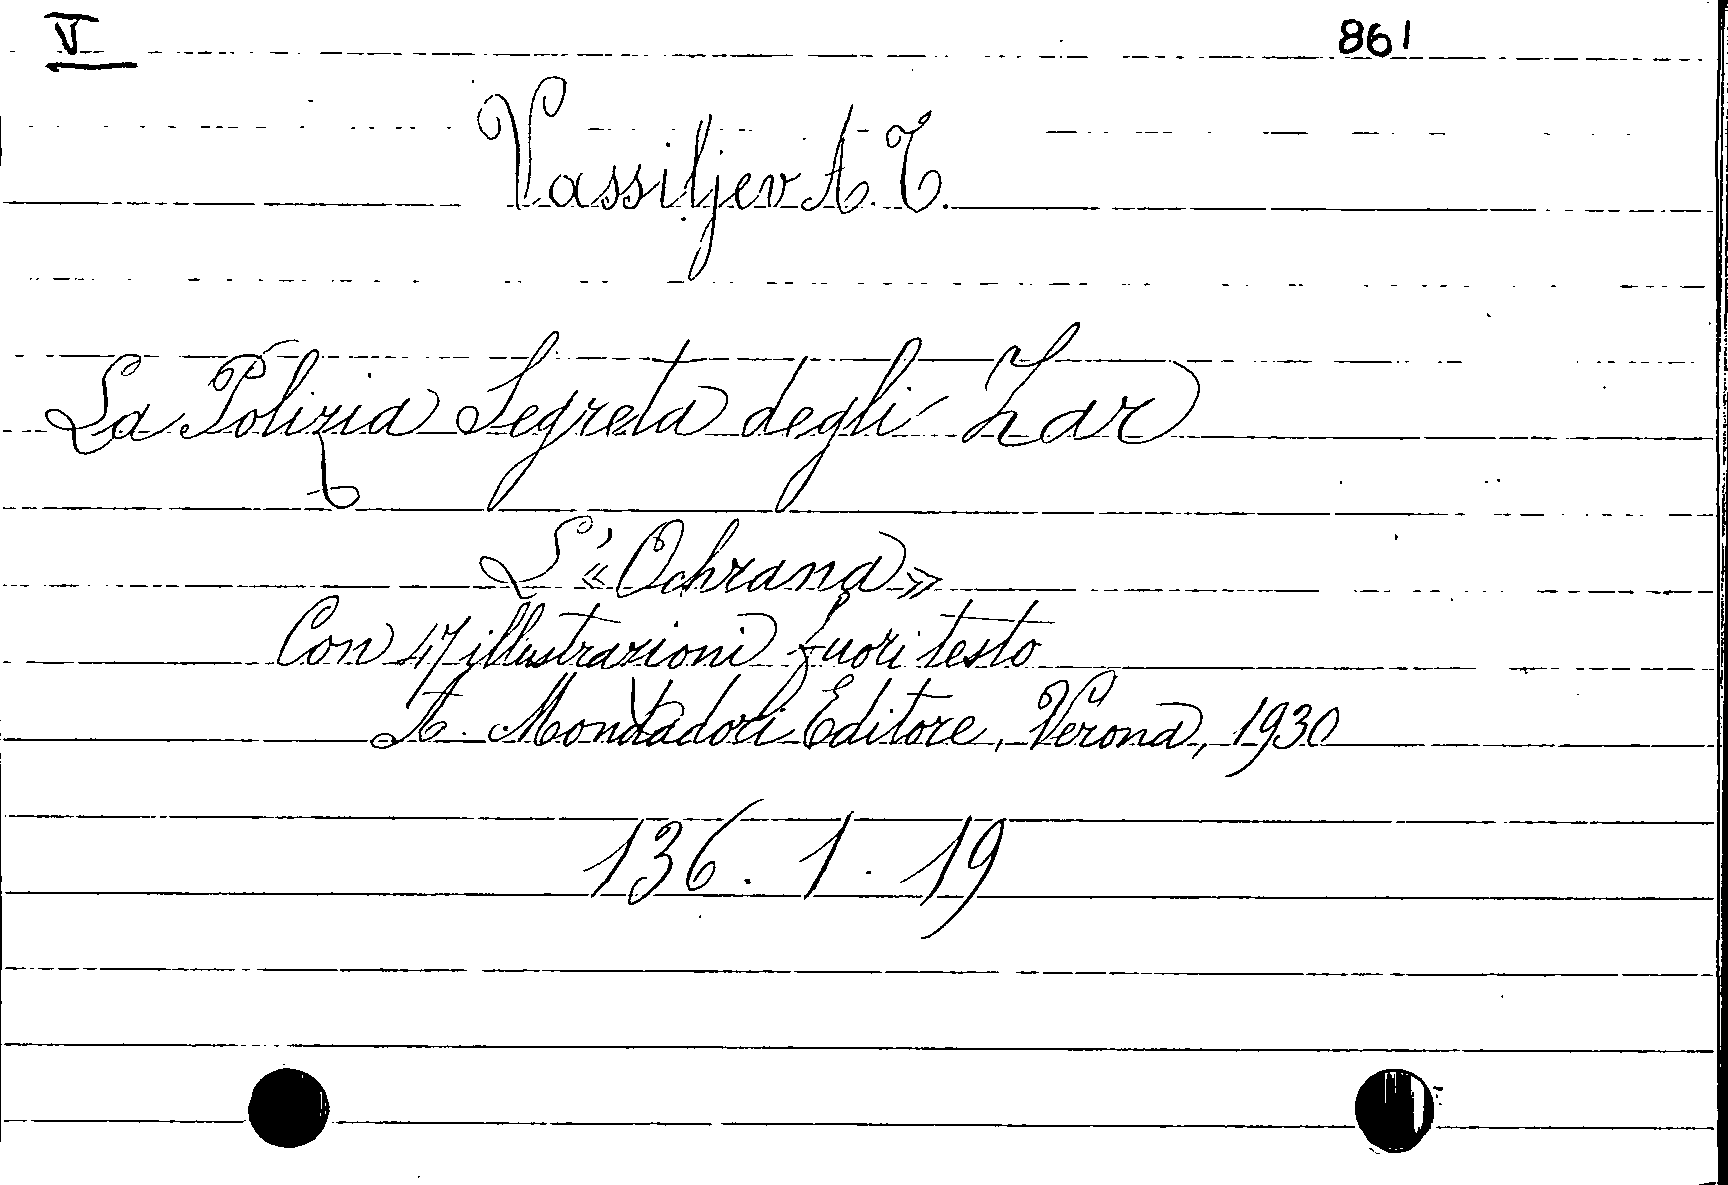 V 861
Vassiljev A. T.
La Polizia Segreta degli Zar
L'«Ochrana»
Con 47 illustrazioni fuori testo
A. Mondadori Editore, Verona, 1930
136. 1. 19